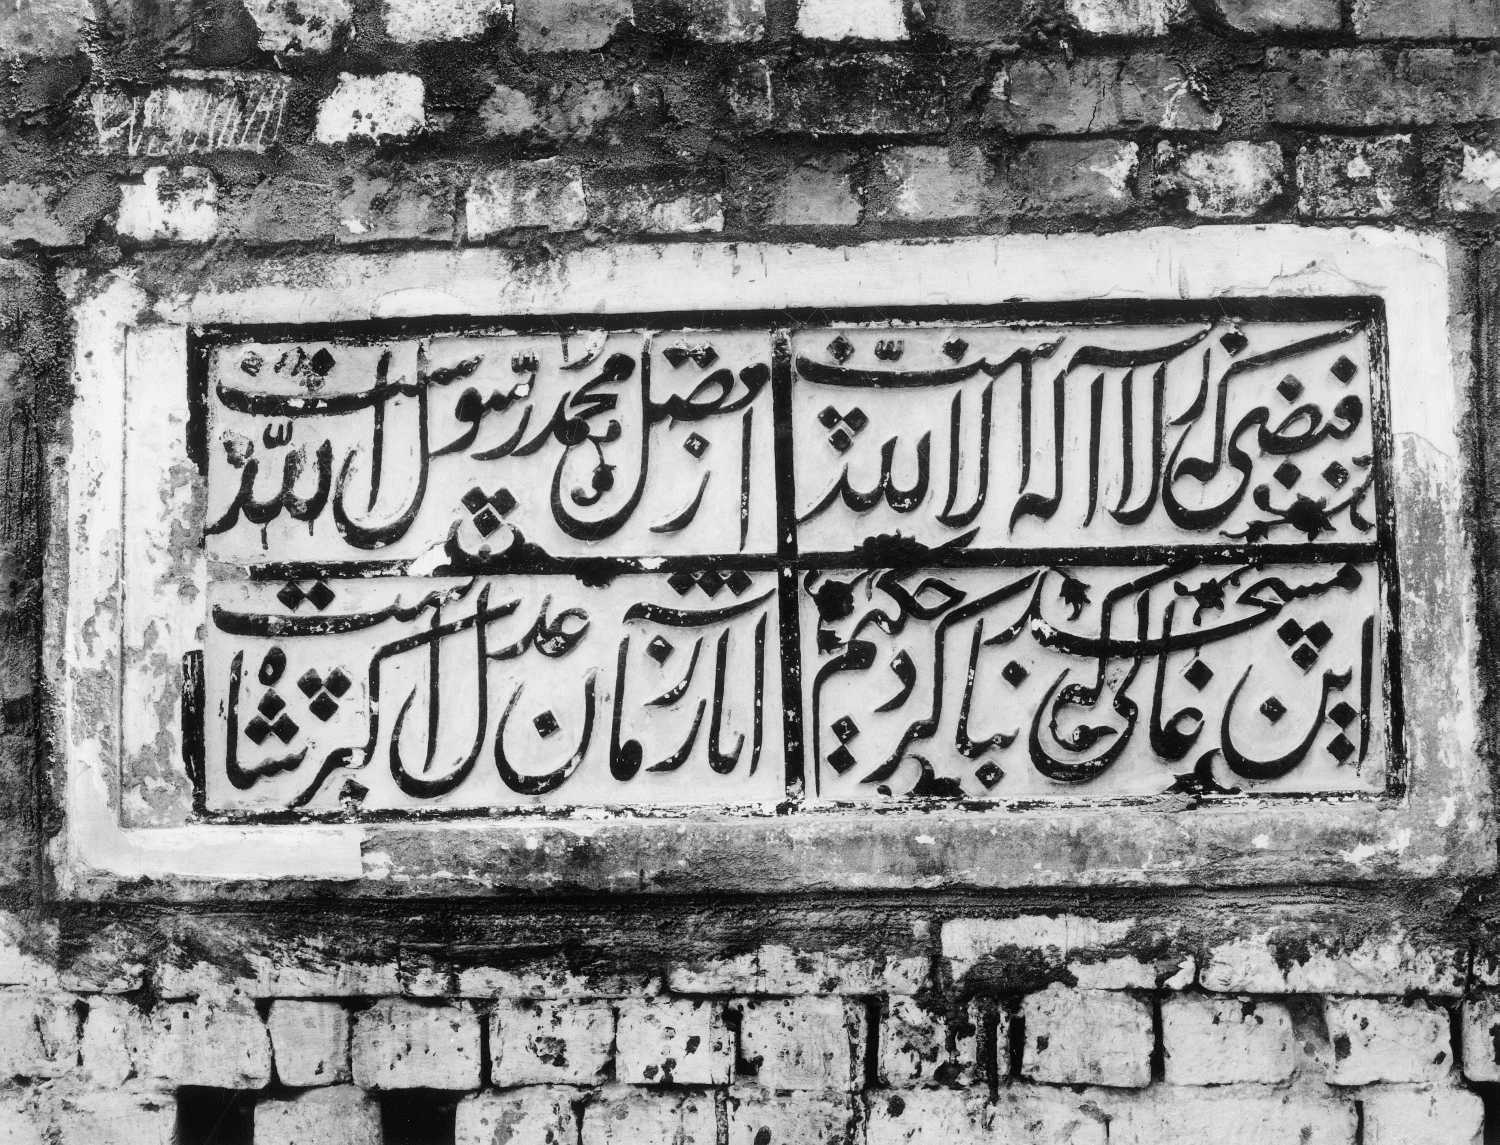 فیضی که ز لا اله الا الله است
از فضل محمد رسول الله است
این مسجد عالی که بنا کرد حکیم
آثار زمان عدل اکبر شاه است